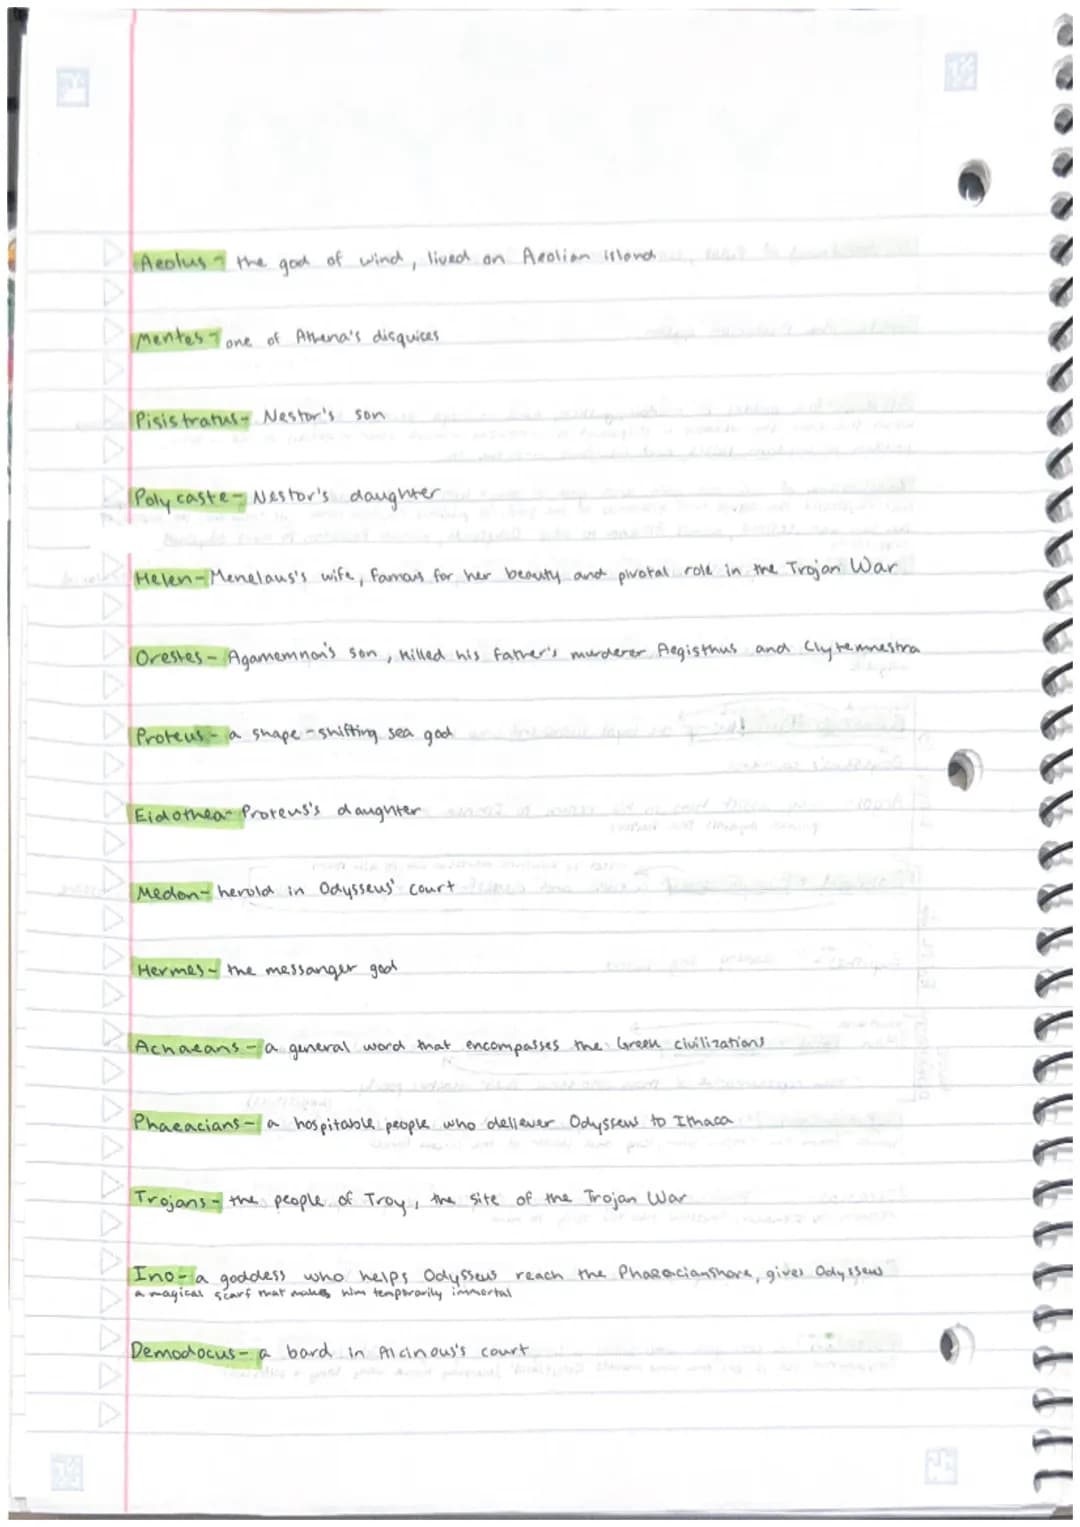 Aeolus - the god of wind, lived on Aeolian island
Mentes - one of Athena's disquices
Pisistratus - Nestor's son
Polycaste - Nestor's daughter
Helen - Menelaus's wife, famous for her beauty and pivotal role in the Trojan War
Orestes - Agamemnon's son, killed his father's murderer Aegisthus and Clytemnestra
Proteus - a shape-shifting sea god
Eidothea - Proteus's daughter
Medon - herold in Odysseus' court
Hermes - the messanger god
Achaeans - a general word that encompasses the Greek civilizations
Phaeacians - a hospitable people who deliever Odysseus to Ithaca
Trojans - the people of Troy, the site of the Trojan War
Ino - a goddess who helps Odysseus reach the Phaeacianshore, gives Odysseus
a magical scarf that makes him temporarily immortal
Demodocus - a bard in Alcinous's court